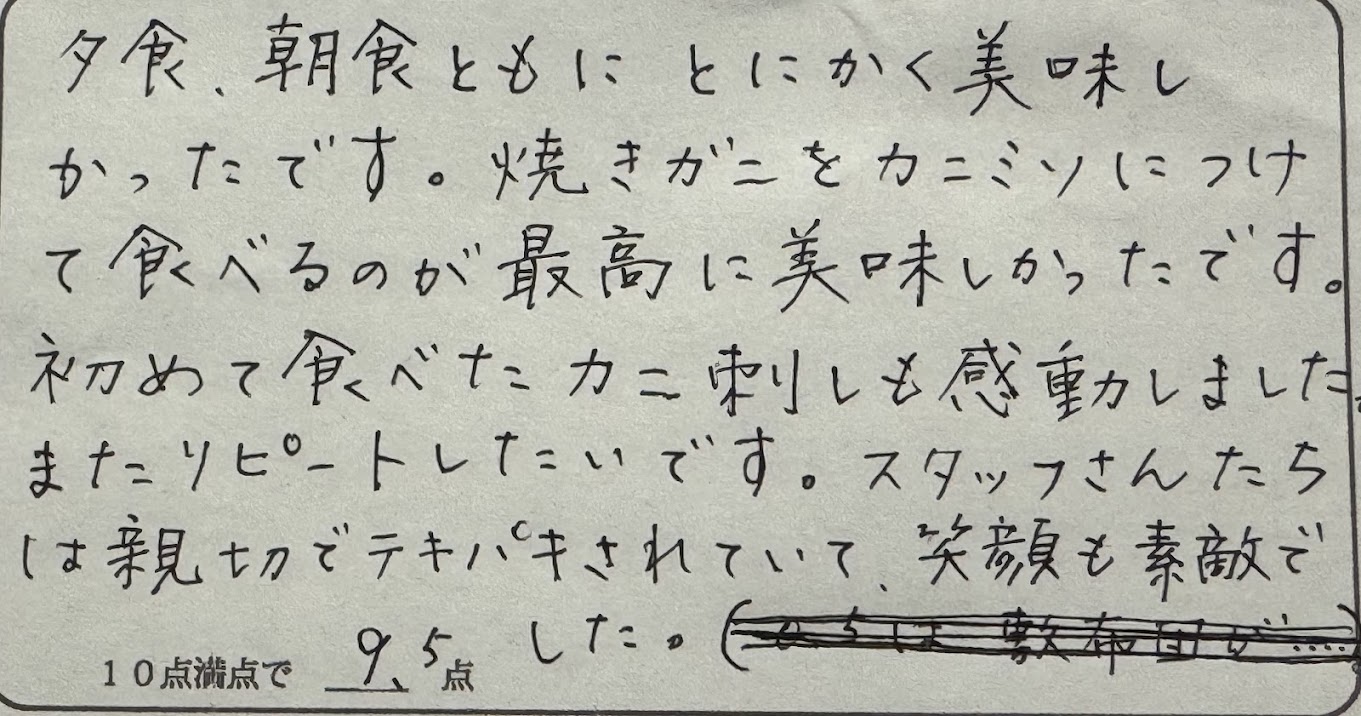 夕食、朝食ともに とにかく美味し
かったです。焼きガニをカニミソにつけ
て食べるのが最高に美味しかったです。
初めて食べたカニ刺しも感動しました。
またリピートしたいです。スタッフさんたち
は親切でテキパキされていて、笑顔も素敵で
した。(0.5は 敷布団が……)
10点満点で 9.5点